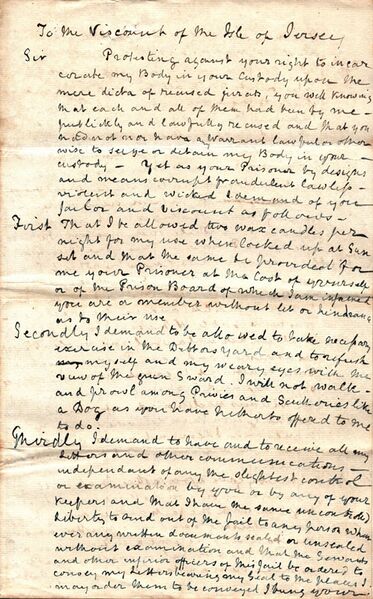 To the Viscount of the Isle of Jersey
Sir Protesting against your right to incar
cerate my Body in your Custody upon the
mere dicta of recused jurats, you well knowing
that each and all of them had been by me
publickly and lawfully recused and that you
had not nor have a Warrant lawful or other
wise to seize or detain my Body in your
custody — Yet as your Prisoner by designs
and means corrupt fraudulent lawless
violent and wicked I demand of you
Jailor and Viscount as follows —
First That I be allowed two wax candles per
night for my use when locked up at Sun
set and that the same be provided for
me your Prisoner at the Cost of yourself
or of the Prison Board of which I am informed
you are a member without let or hindrance
as to their use
Secondly I demand to be allowed to take necessary
exercise in the Debtors Yard and to refresh
myself and my weary eyes with the
view of the green Sward. I will not walk
and prowl among Privies and Sculleries like
a Dog as you have hitherto offered to me
to do.
Thirdly I demand to have and to receive all my
Letters and other communications —
independent of any the slightest control
or examination by you or by any of your
Keepers and that I have the same uncontrolled
liberty to send out of the Jail to any person whom
ever any written documents sealed or unsealed
without examination and that the Servants
and other inferior officers of this Jail be ordered to
convey my Letters bearing my Seal to the places I
may order them to be conveyed I being your